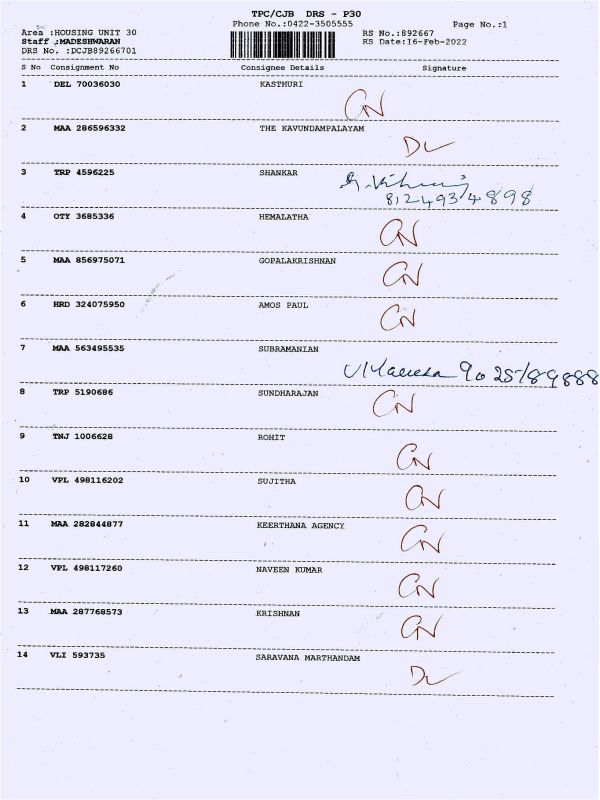 TPC/CJB DRS - P30
Phone No.:0422-3505555 Page No.:1
Area :HOUSING UNIT 30 RS No.:892667
Staff :MADESHWARAN RS Date:16-Feb-2022
DRS No. :DCJB89266701
S No Consignment No Consignee Details Signature
1 DEL 70036030 KASTHURI
CN
2 MAA 286596332 THE KAVUNDAMPALAYAM
DL
3 TRP 4596225 SHANKAR
8124934898
4 OTY 3685336 HEMALATHA
CN
5 MAA 856975071 GOPALAKRISHNAN
CN
6 HRD 324075950 AMOS PAUL
CN
7 MAA 563495535 SUBRAMANIAN
9025789888
8 TRP 5190686 SUNDHARAJAN
CN
9 TNJ 1006628 ROHIT
CN
10 VPL 498116202 SUJITHA
CN
11 MAA 282844877 KEERTHANA AGENCY
CN
12 VPL 498117260 NAVEEN KUMAR
CN
13 MAA 287768573 KRISHNAN
CN
14 VLI 593735 SARAVANA MARTHANDAM
DL